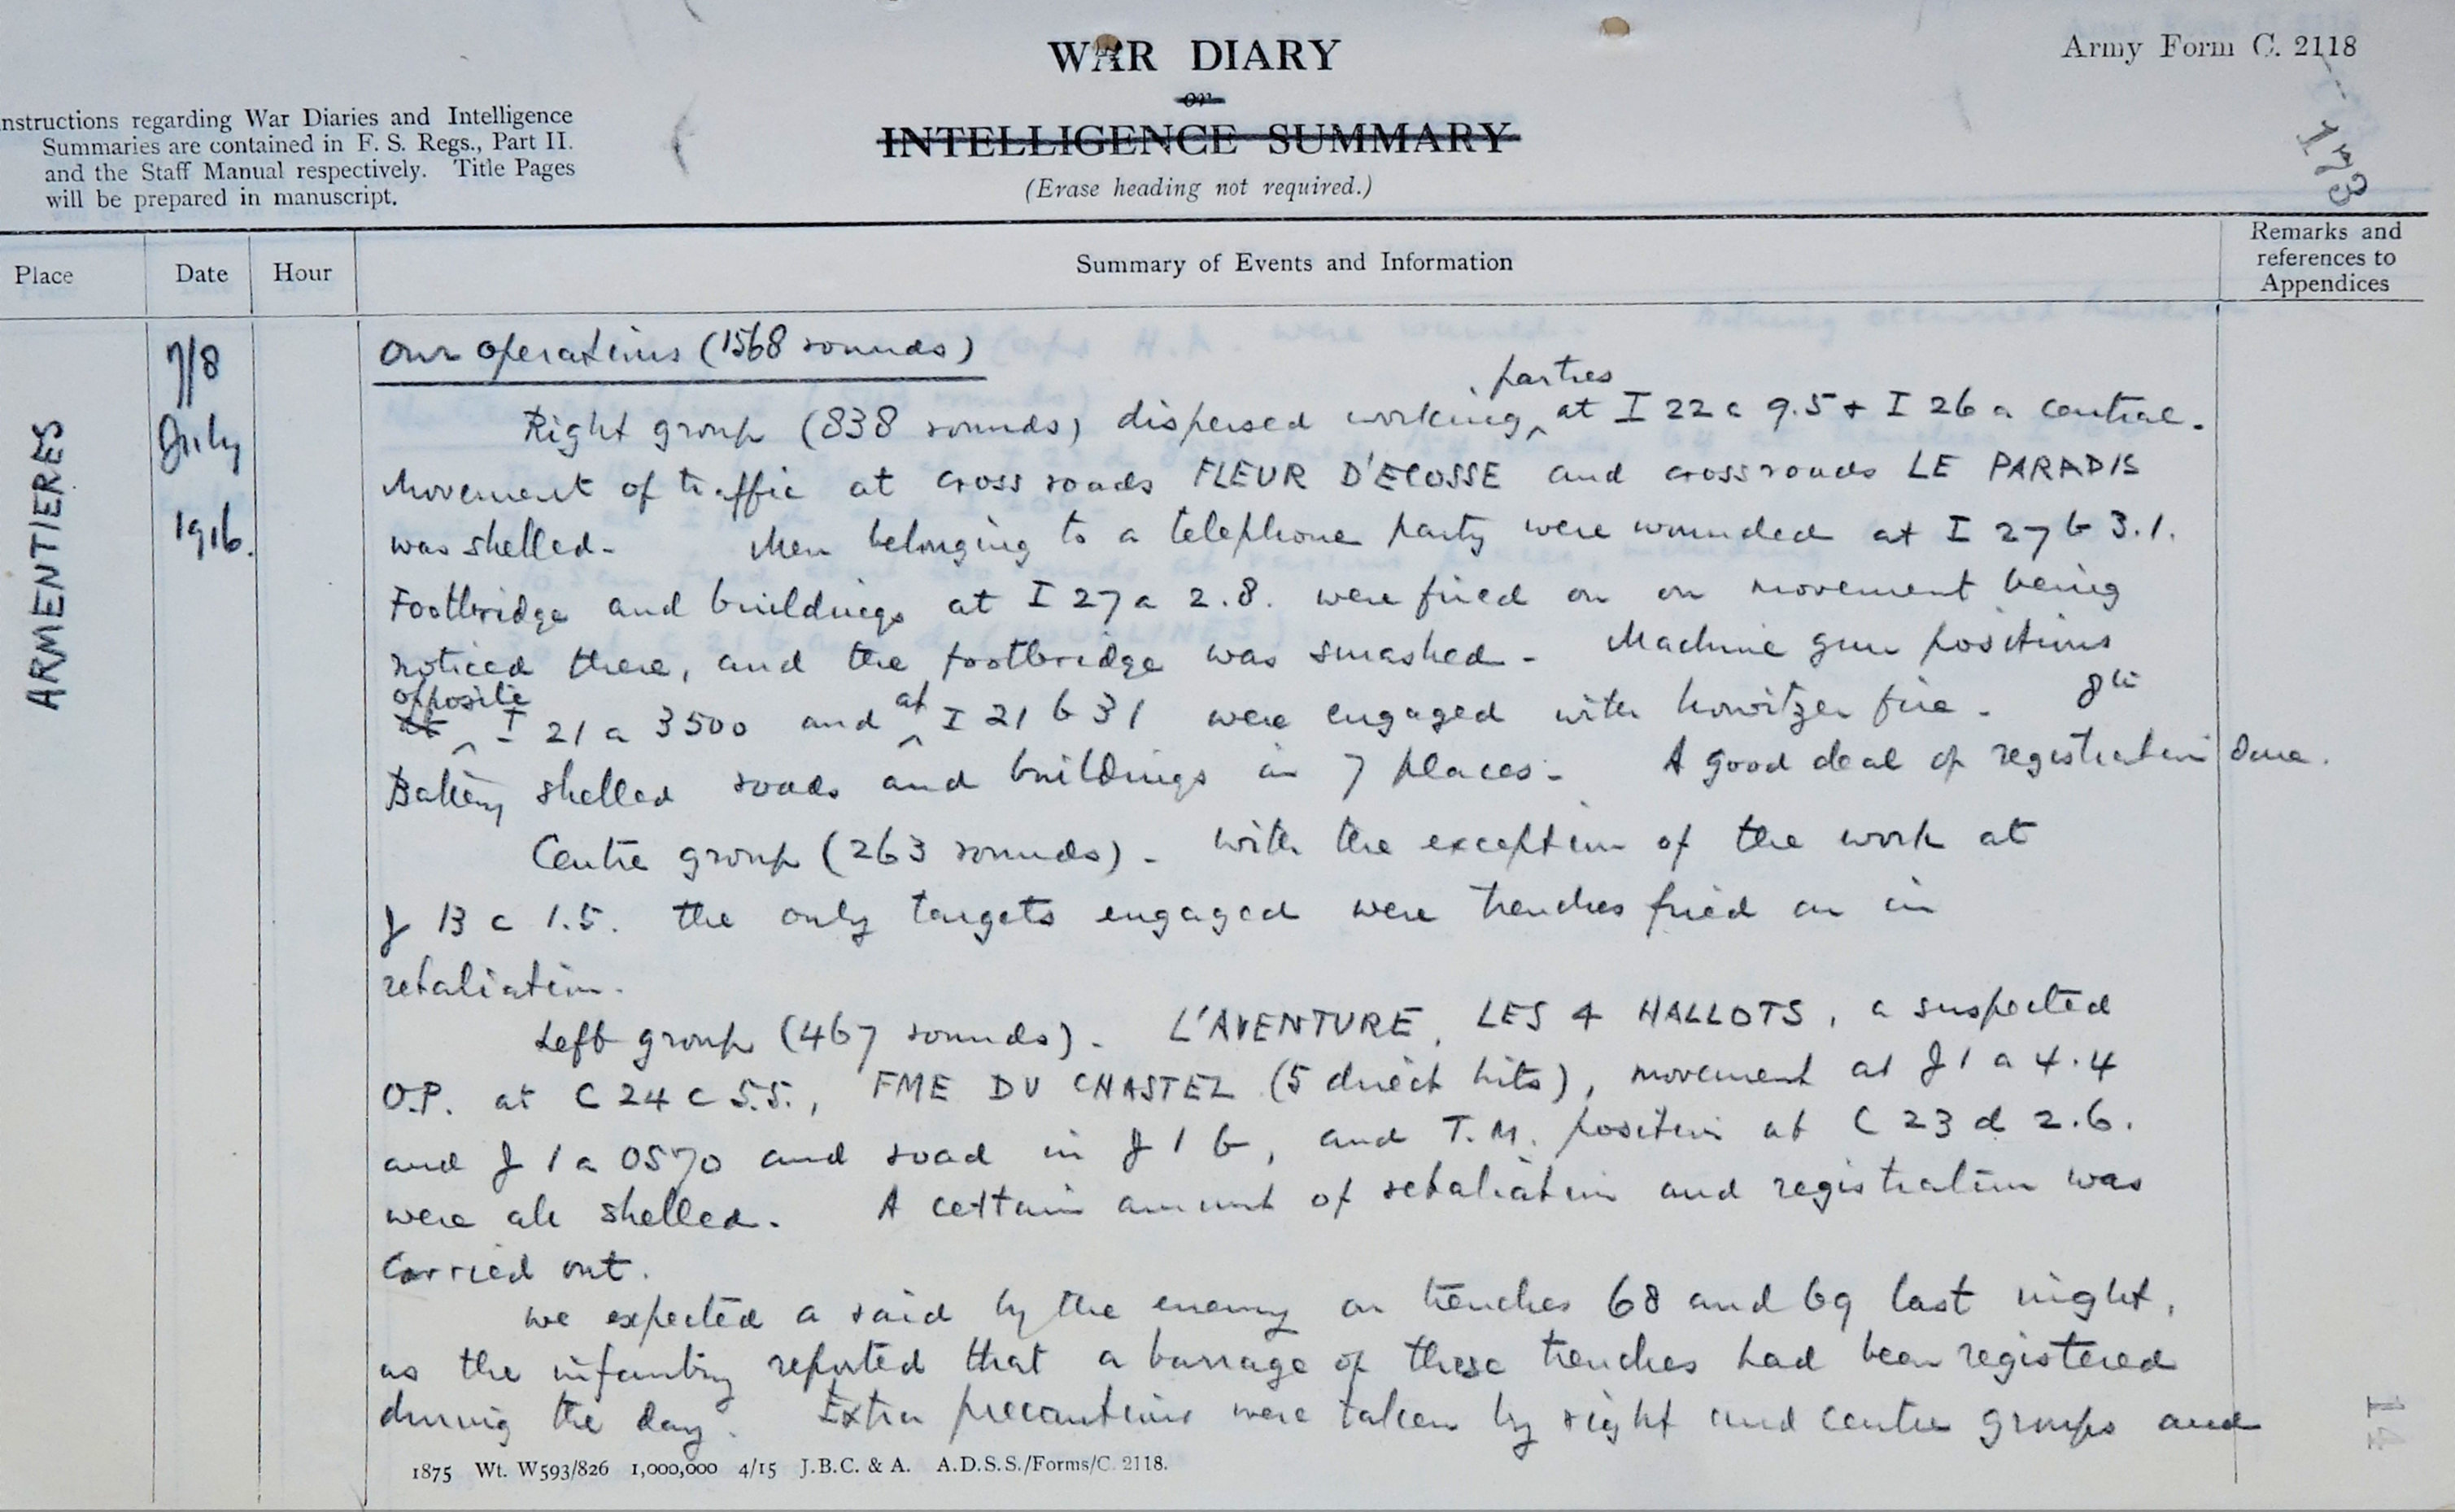 WAR DIARY
or
INTELLIGENCE SUMMARY
(Erase heading not required.)
Army Form C. 2118
173
nstructions regarding War Diaries and Intelligence
Summaries are contained in F. S. Regs., Part II.
and the Staff Manual respectively. Title Pages
will be prepared in manuscript.
Place
Date
Hour
Summary of Events and Information
Remarks and
references to
Appendices
ARMENTIERES
7/8
July
1916.
Our operations (1568 rounds)
Right group (838 rounds) dispersed working parties at I 22 c 9.5 + I 26 a central.
Movement of traffic at cross roads FLEUR D'ECOSSE and crossroads LE PARADIS
was shelled - Men belonging to a telephone party were wounded at I 27 b 3.1.
Footbridge and buildings at I 27 a 2.8. were fired on on movement being
noticed there, and the footbridge was smashed - Machine gun positions
at opposite I 21 a 3500 and at I 21 b 31 were engaged with howitzer fire - 8th
Battery shelled roads and buildings in 7 places - A good deal of registration done.
Centre group (263 rounds) - With the exception of the work at
J 13 c 1.5. the only targets engaged were trenches fired on in
retaliation.
Left group (467 rounds) - L'AVENTURE, LES 4 HALLOTS, a suspected
O.P. at C 24 c 5.5., FME DU CHASTEL (5 direct hits), movement at J 1 a 4.4
and J 1 a 0570 and road in J 1 b, and T.M. position at C 23 d 2.6.
were all shelled. A certain amount of retaliation and registration was
carried out.
We expected a raid by the enemy on trenches 68 and 69 last night,
as the infantry reported that a barrage of these trenches had been registered
during the day. Extra precautions were taken by right and centre groups and
1875 Wt. W593/826 1,000,000 4/15 J.B.C. & A. A.D.S.S./Forms/C. 2118.
14